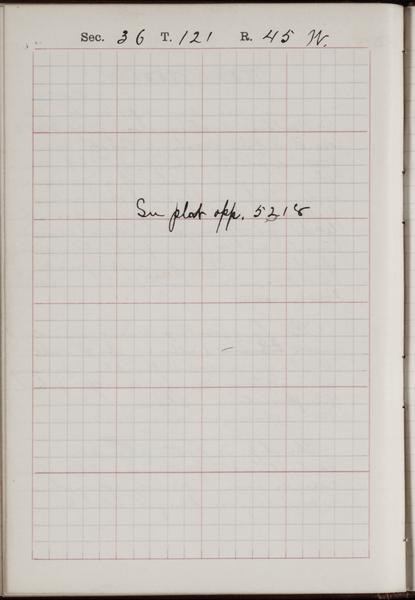 Sec. 36 T. 121 R. 45 W.
See plat opp. 5218